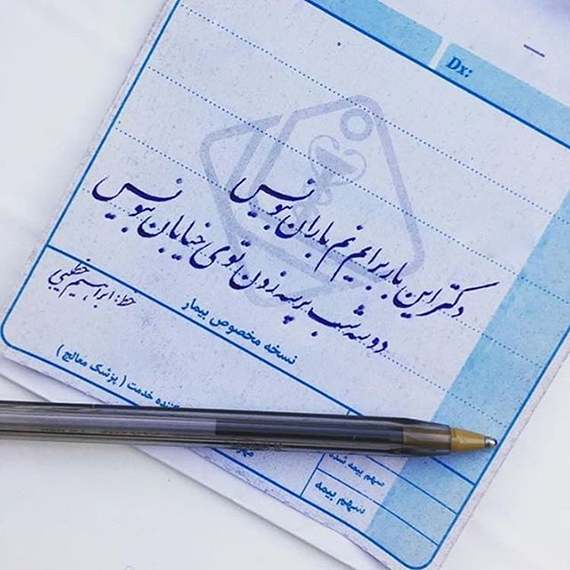 Dx:
دکتر این بار برایم نم باران بنویس
دو سه شب پرسه زدن توی خیابان بنویس
خط: ابراهیم خطیبی
نسخه مخصوص بیمار
خدمت ( پزشک معالج )
سهم بیمه شده
سهم بیمه